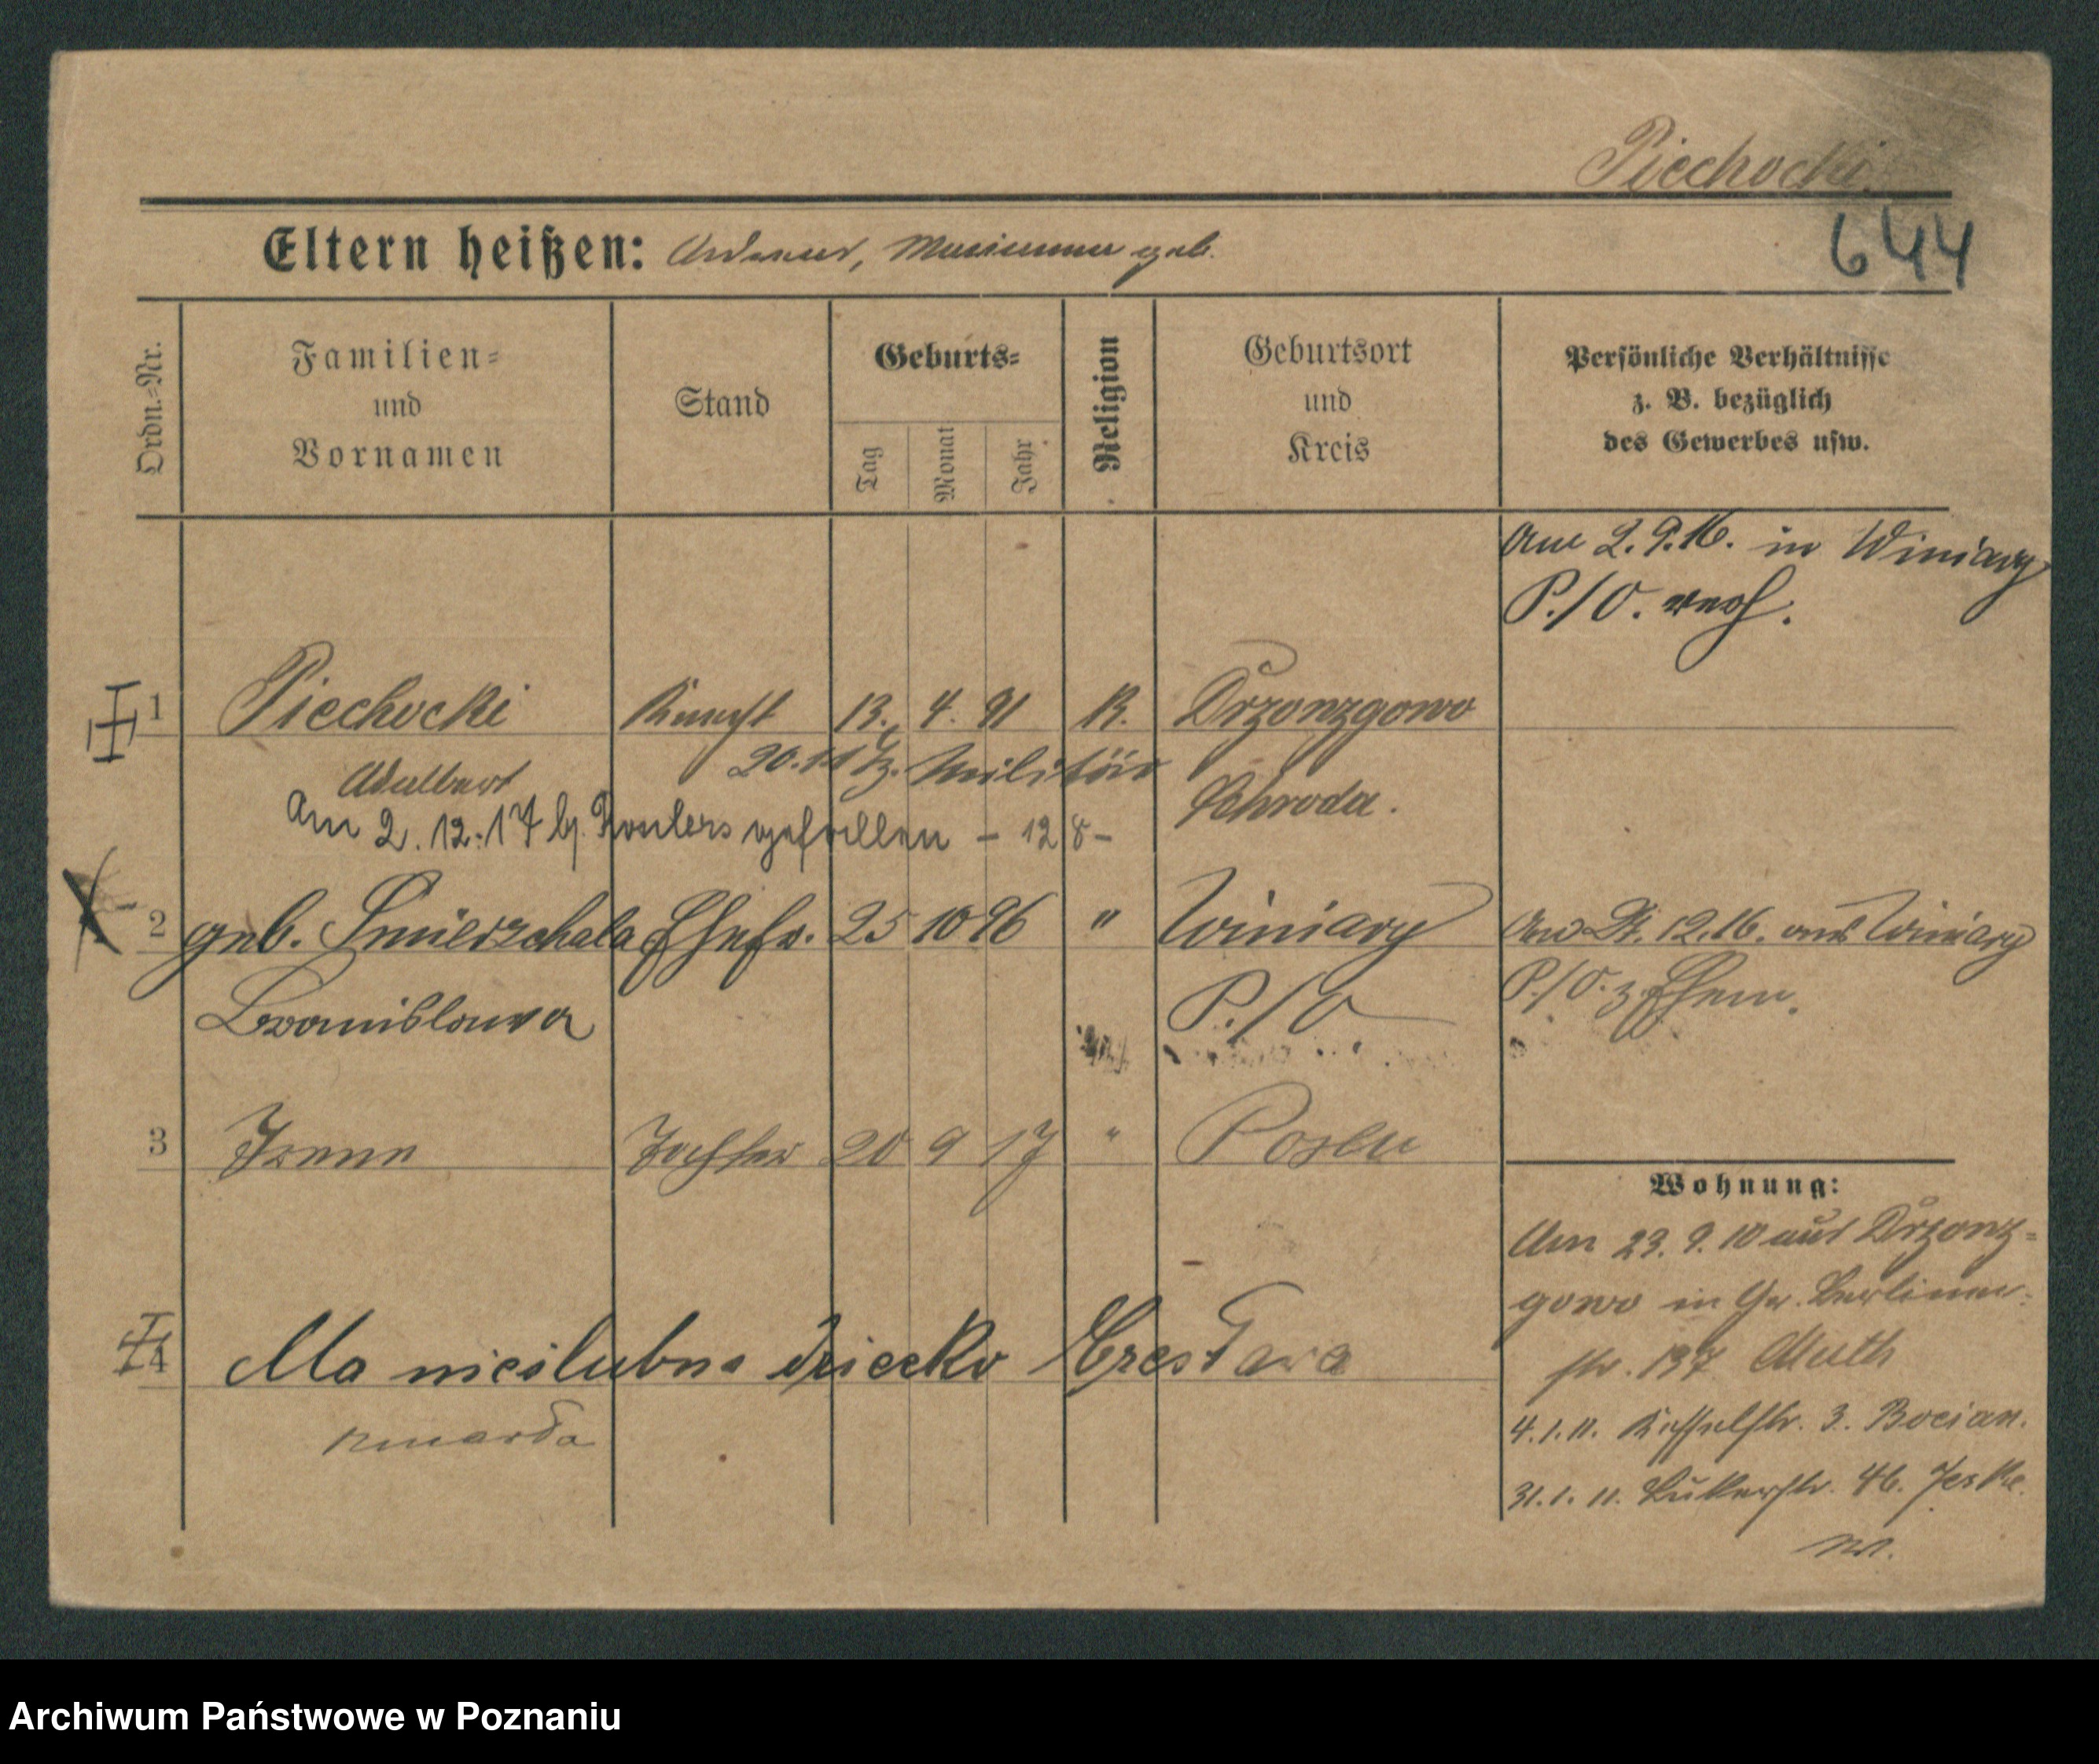 Piechocki.
644
Eltern heißen: Andreas, Marianna geb.
Ordn.=Nr.
Familien=
und
Vornamen
Stand
Geburts=
Tag
Monat
Jahr
Religion
Geburtsort
und
Kreis
Persönliche Verhältnisse
z. B. bezüglich
des Gewerbes usw.
Am 2. 9. 16. in Winiary
P./O. verh.
1 Piechocki Knecht 13. 4. 91 K. Drzonzgowo
Adalbert 20. 11 Militär Schroda.
Am 2. 12. 17 b. gefallen – 12 8 –
2 geb. Smierzchala Ehefr. 25 10 96 " Winiary
Am 12. 16. aus Winiary
Bronislawa P./O
P./O. z. Ehem.
3 Irene Tochter 20 9 17 " Posen
4 Ma nieślubne dziecko Czesława
zmarła
Wohnung:
Am 23. 9. 10 aus Drzonz=
gowo in Gr. Berliner=
str. 137 Muth
4. 1. 11. 3. Bocian.
31. 1. 11. Bukerstr. 46. Jeske.